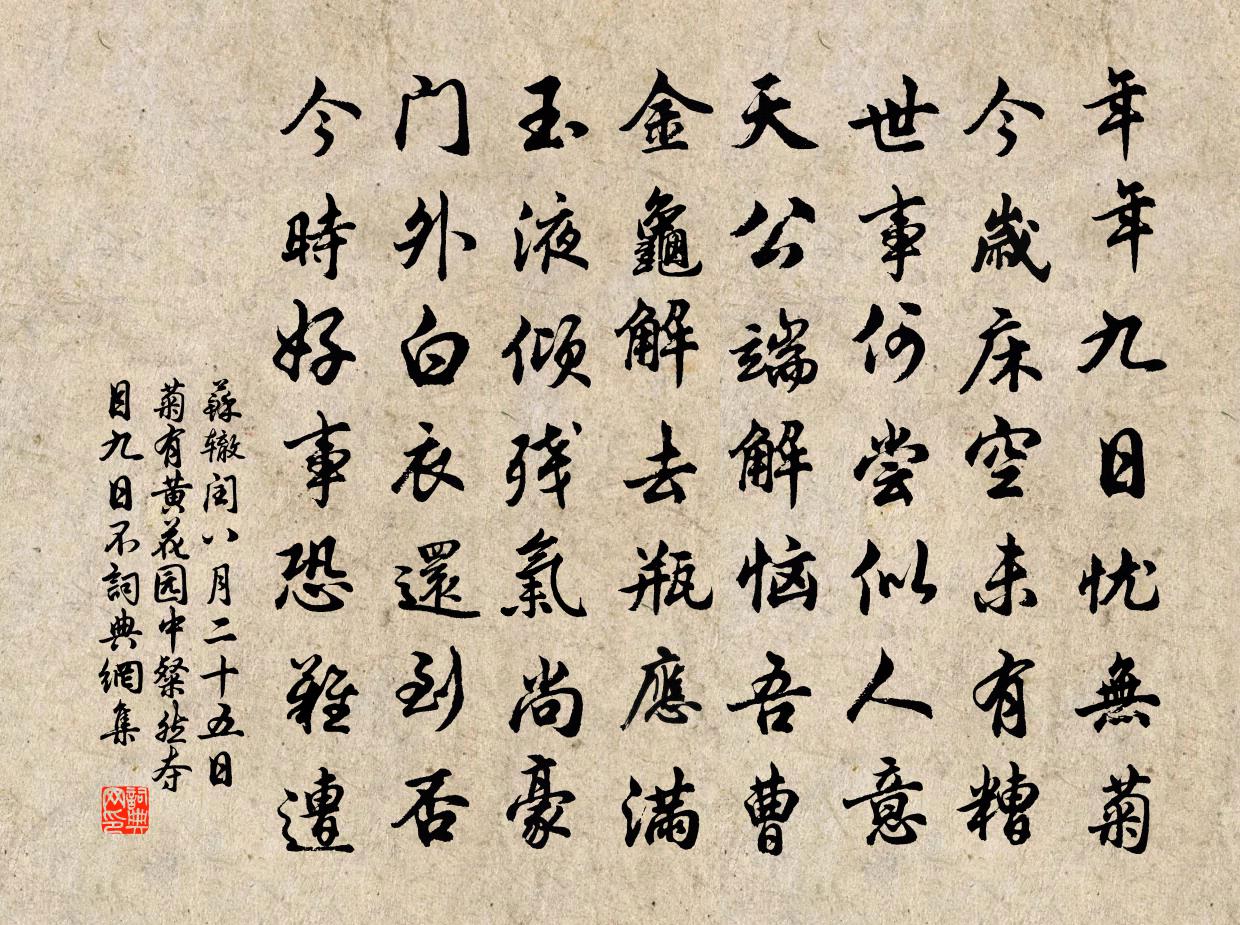 年年九日忧無菊
今歲床空未有糟
世事何尝似人意
天公端解恼吾曹
金龜解去瓶應滿
玉液倾残氣尚豪
门外白衣還到否
今時好事恐難遭
蘇辙闰八月二十五日
菊有黄花园中粲然夺
目九日不詞典網集
詞典
网印